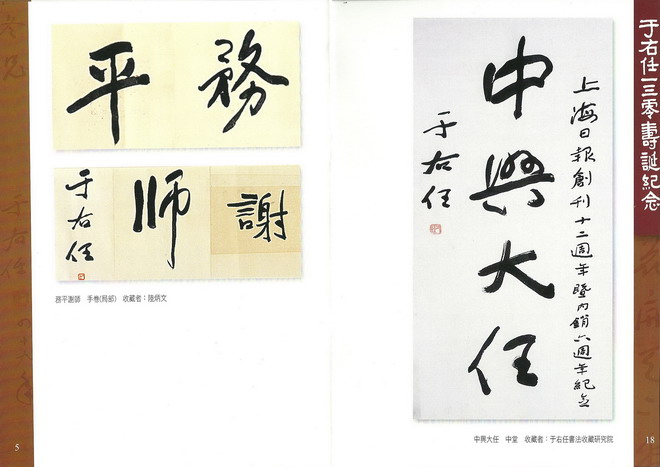 務平
謝師
于右任
務平謝師　手卷(局部)　收藏者：陸炳文
5
于右任一三零壽誕紀念
上海日報創刊十二週年暨內銷六週年紀念
中興大任
于右任
中興大任　中堂　收藏者：于右任書法收藏研究院
18